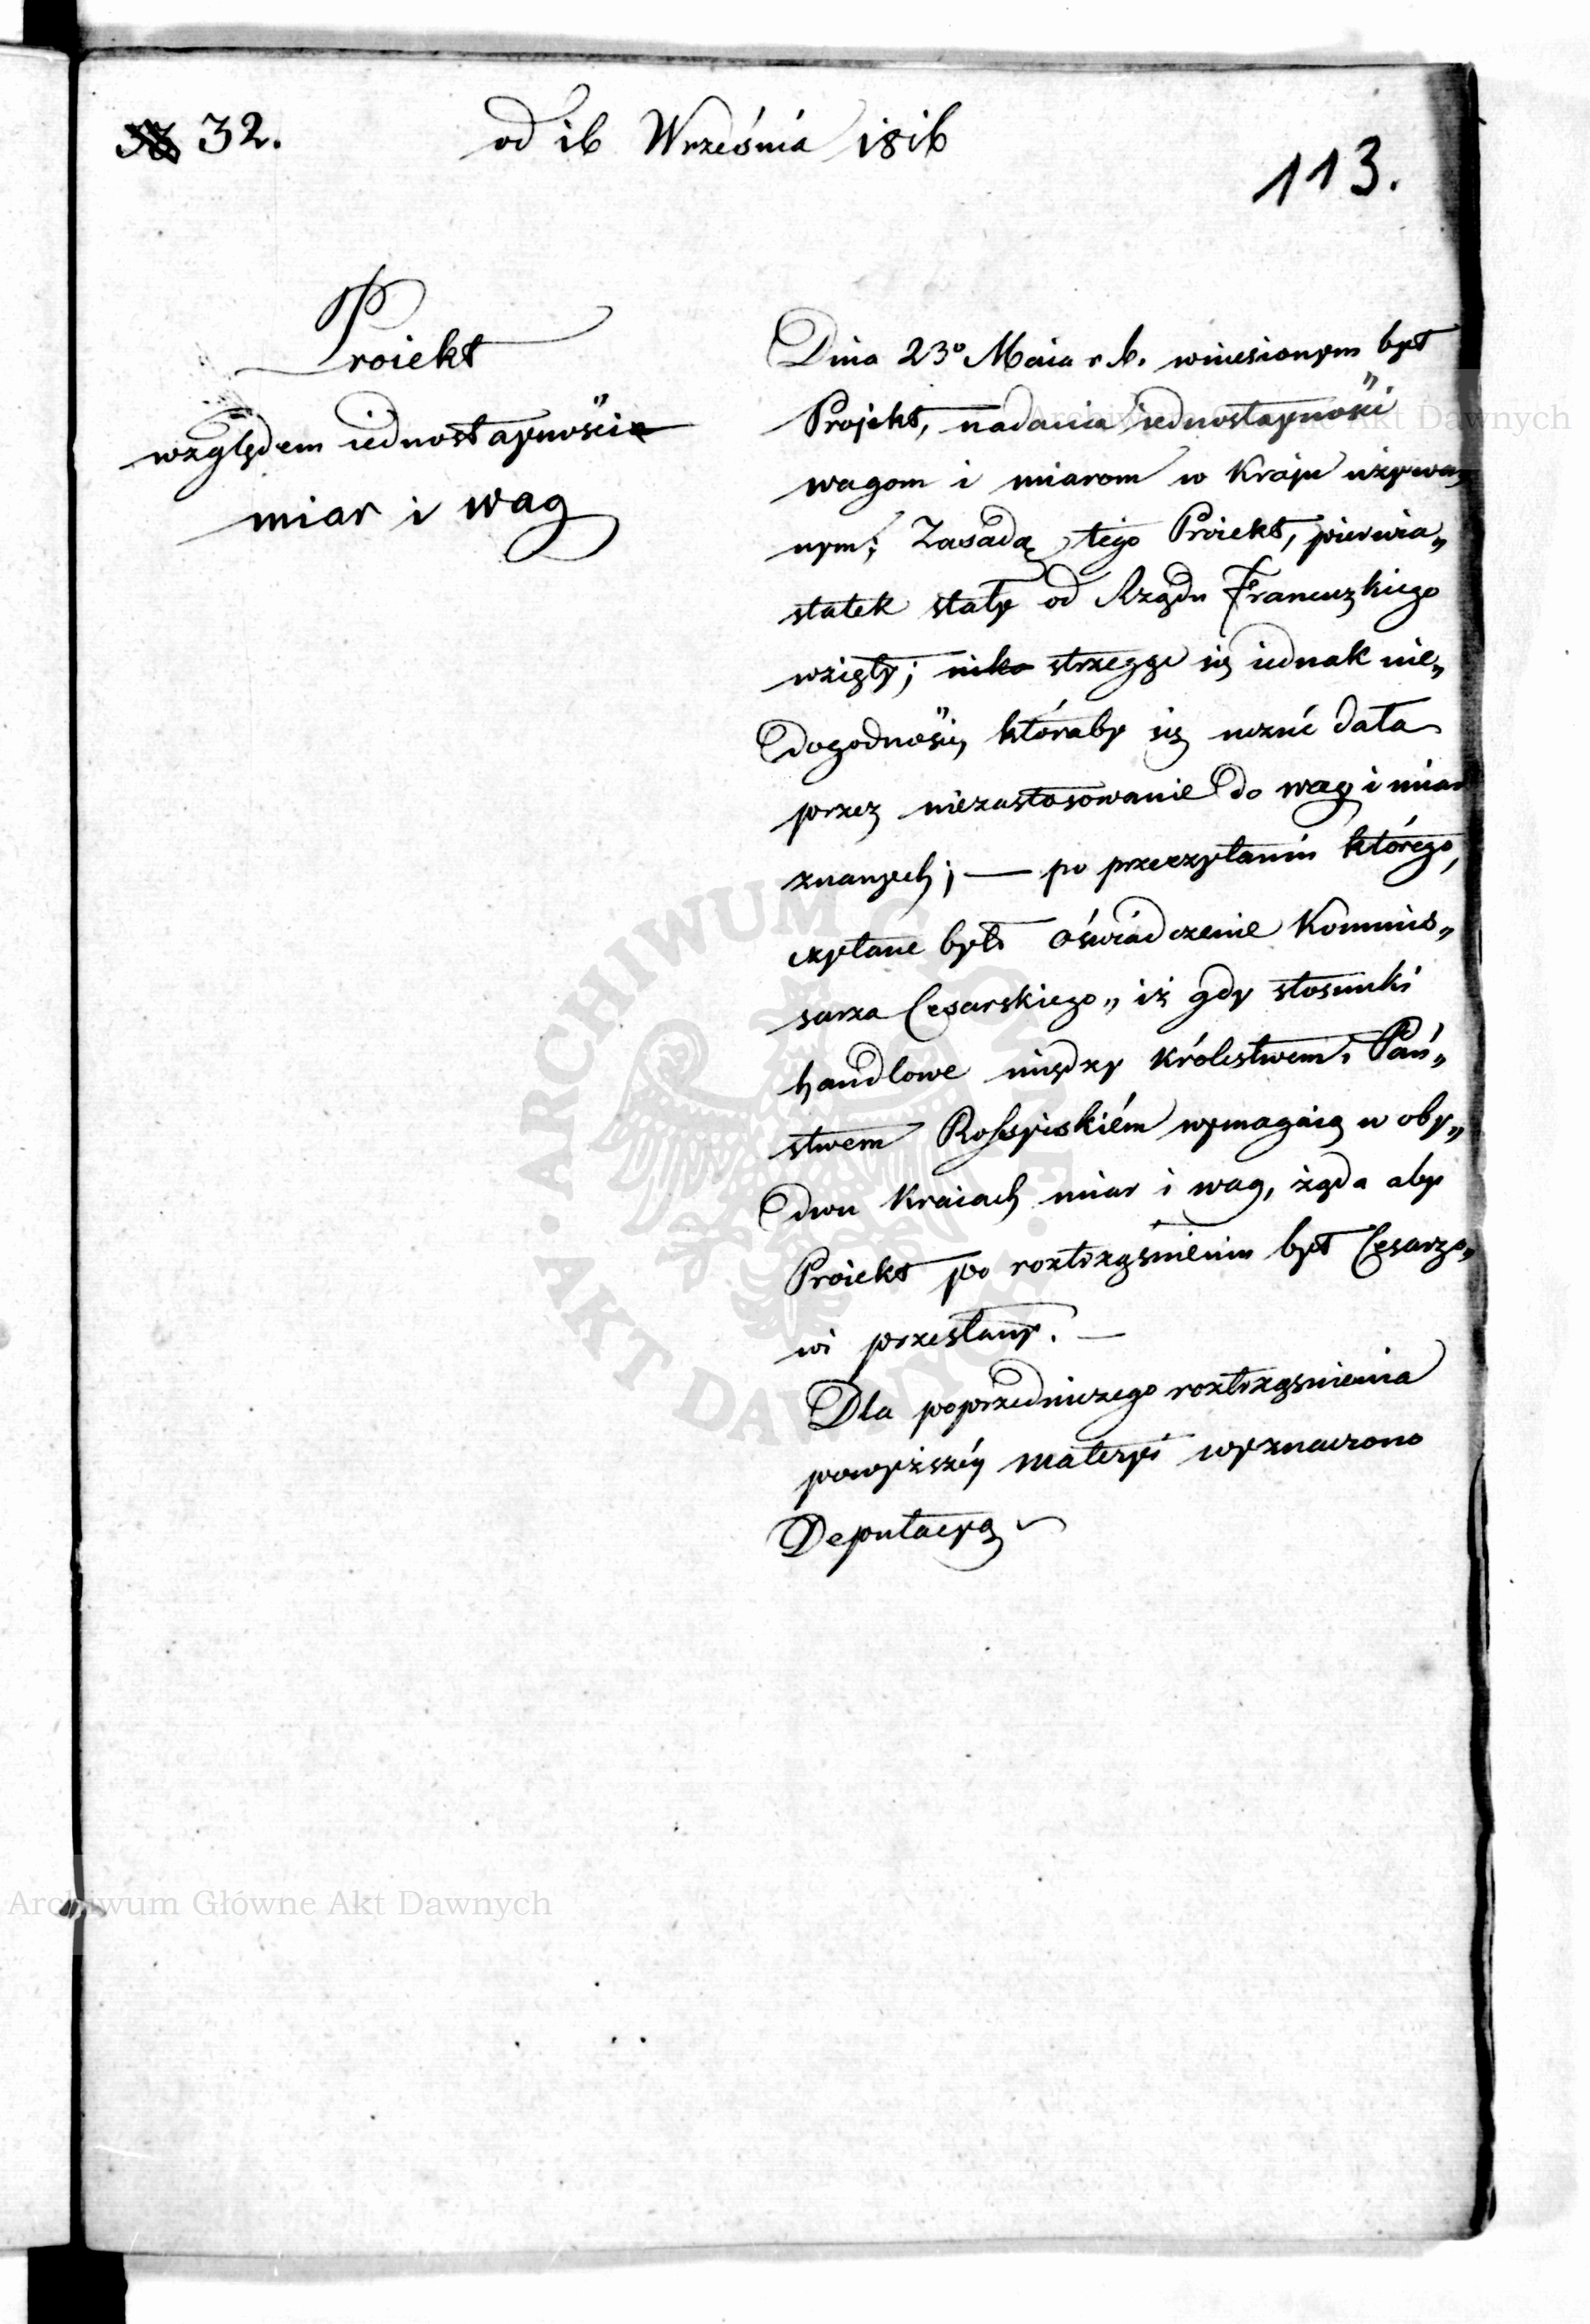 32.
od 16 Września 1816
113.
Proiekt
względem iednostayności
miar i wag
Dnia 23º Maia r. b. wniesionym był
Projekt, nadania iednostayności
wagom i miarom w Kraju używa„
nym; Zasadą tego Proiekt, pierwia„
statek stały od Rządu Francuzkiego
wzięty; strzeggc się iednak nie„
dogodności, któraby się uczuć dała
przez niezastosowanie do wag i miar
znanych; — po przeczytaniu którego,
czytane było oświadczenie Kommis„
sarza Cesarskiego„ iż gdy stosunki
handlowe między Królestwem i Pań„
stwem Rossyiskiém wymagaią w oby„
dwu Kraiach miar i wag, żąda aby
Proiekt po roztrząśnieniu był Cesarzo„
wi przesłany. —
Dla poprzedniczego roztrząsnienia
powyższéy materyi wyznaczono
Deputacyą
Archiwum Główne Akt Dawnych
Archiwum Główne Akt Dawnych
ARCHIWUM GŁÓWNE AKT DAWNYCH